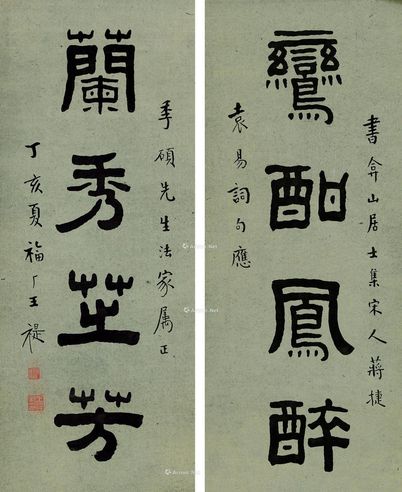 書弇山居士集宋人蔣捷
鸞酣鳳醉
袁易詞句應
季碩先生法家屬正
蘭秀芷芳
丁亥夏福厂王禔